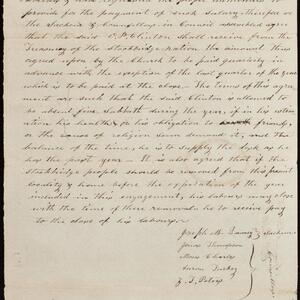 provide for the payment of such salary therefore
the Sachem & Counsellors in Council assembled agree
that the said O. P. Clinton shall receive from the
Treasury of the Stockbridge Nation the amount thus
agreed upon by the Church to be paid quarterly in
advance with the exception of the last quarter of the year
which is to be paid at the above – The terms of this agree
ment are such that the said Clinton is allowed to
be absent five Sabbaths during the year, if in his estim
ation his health, or his obligation to friends,
or the cause of religion seem demand it, and the
balance of the time, he is to supply the desk as he
has the past year – It is also agreed that if the
Stockbridge people should be removed from this present
locality & home before the expiration of the year
included in this engagement, his labours may close
with the time of there removal & he to receive pay
to the close of his labours.
Joseph M. Quinney Sachem
Jonas Thompson
Moses Charles
Aaron Turkey
Z. T. Peters